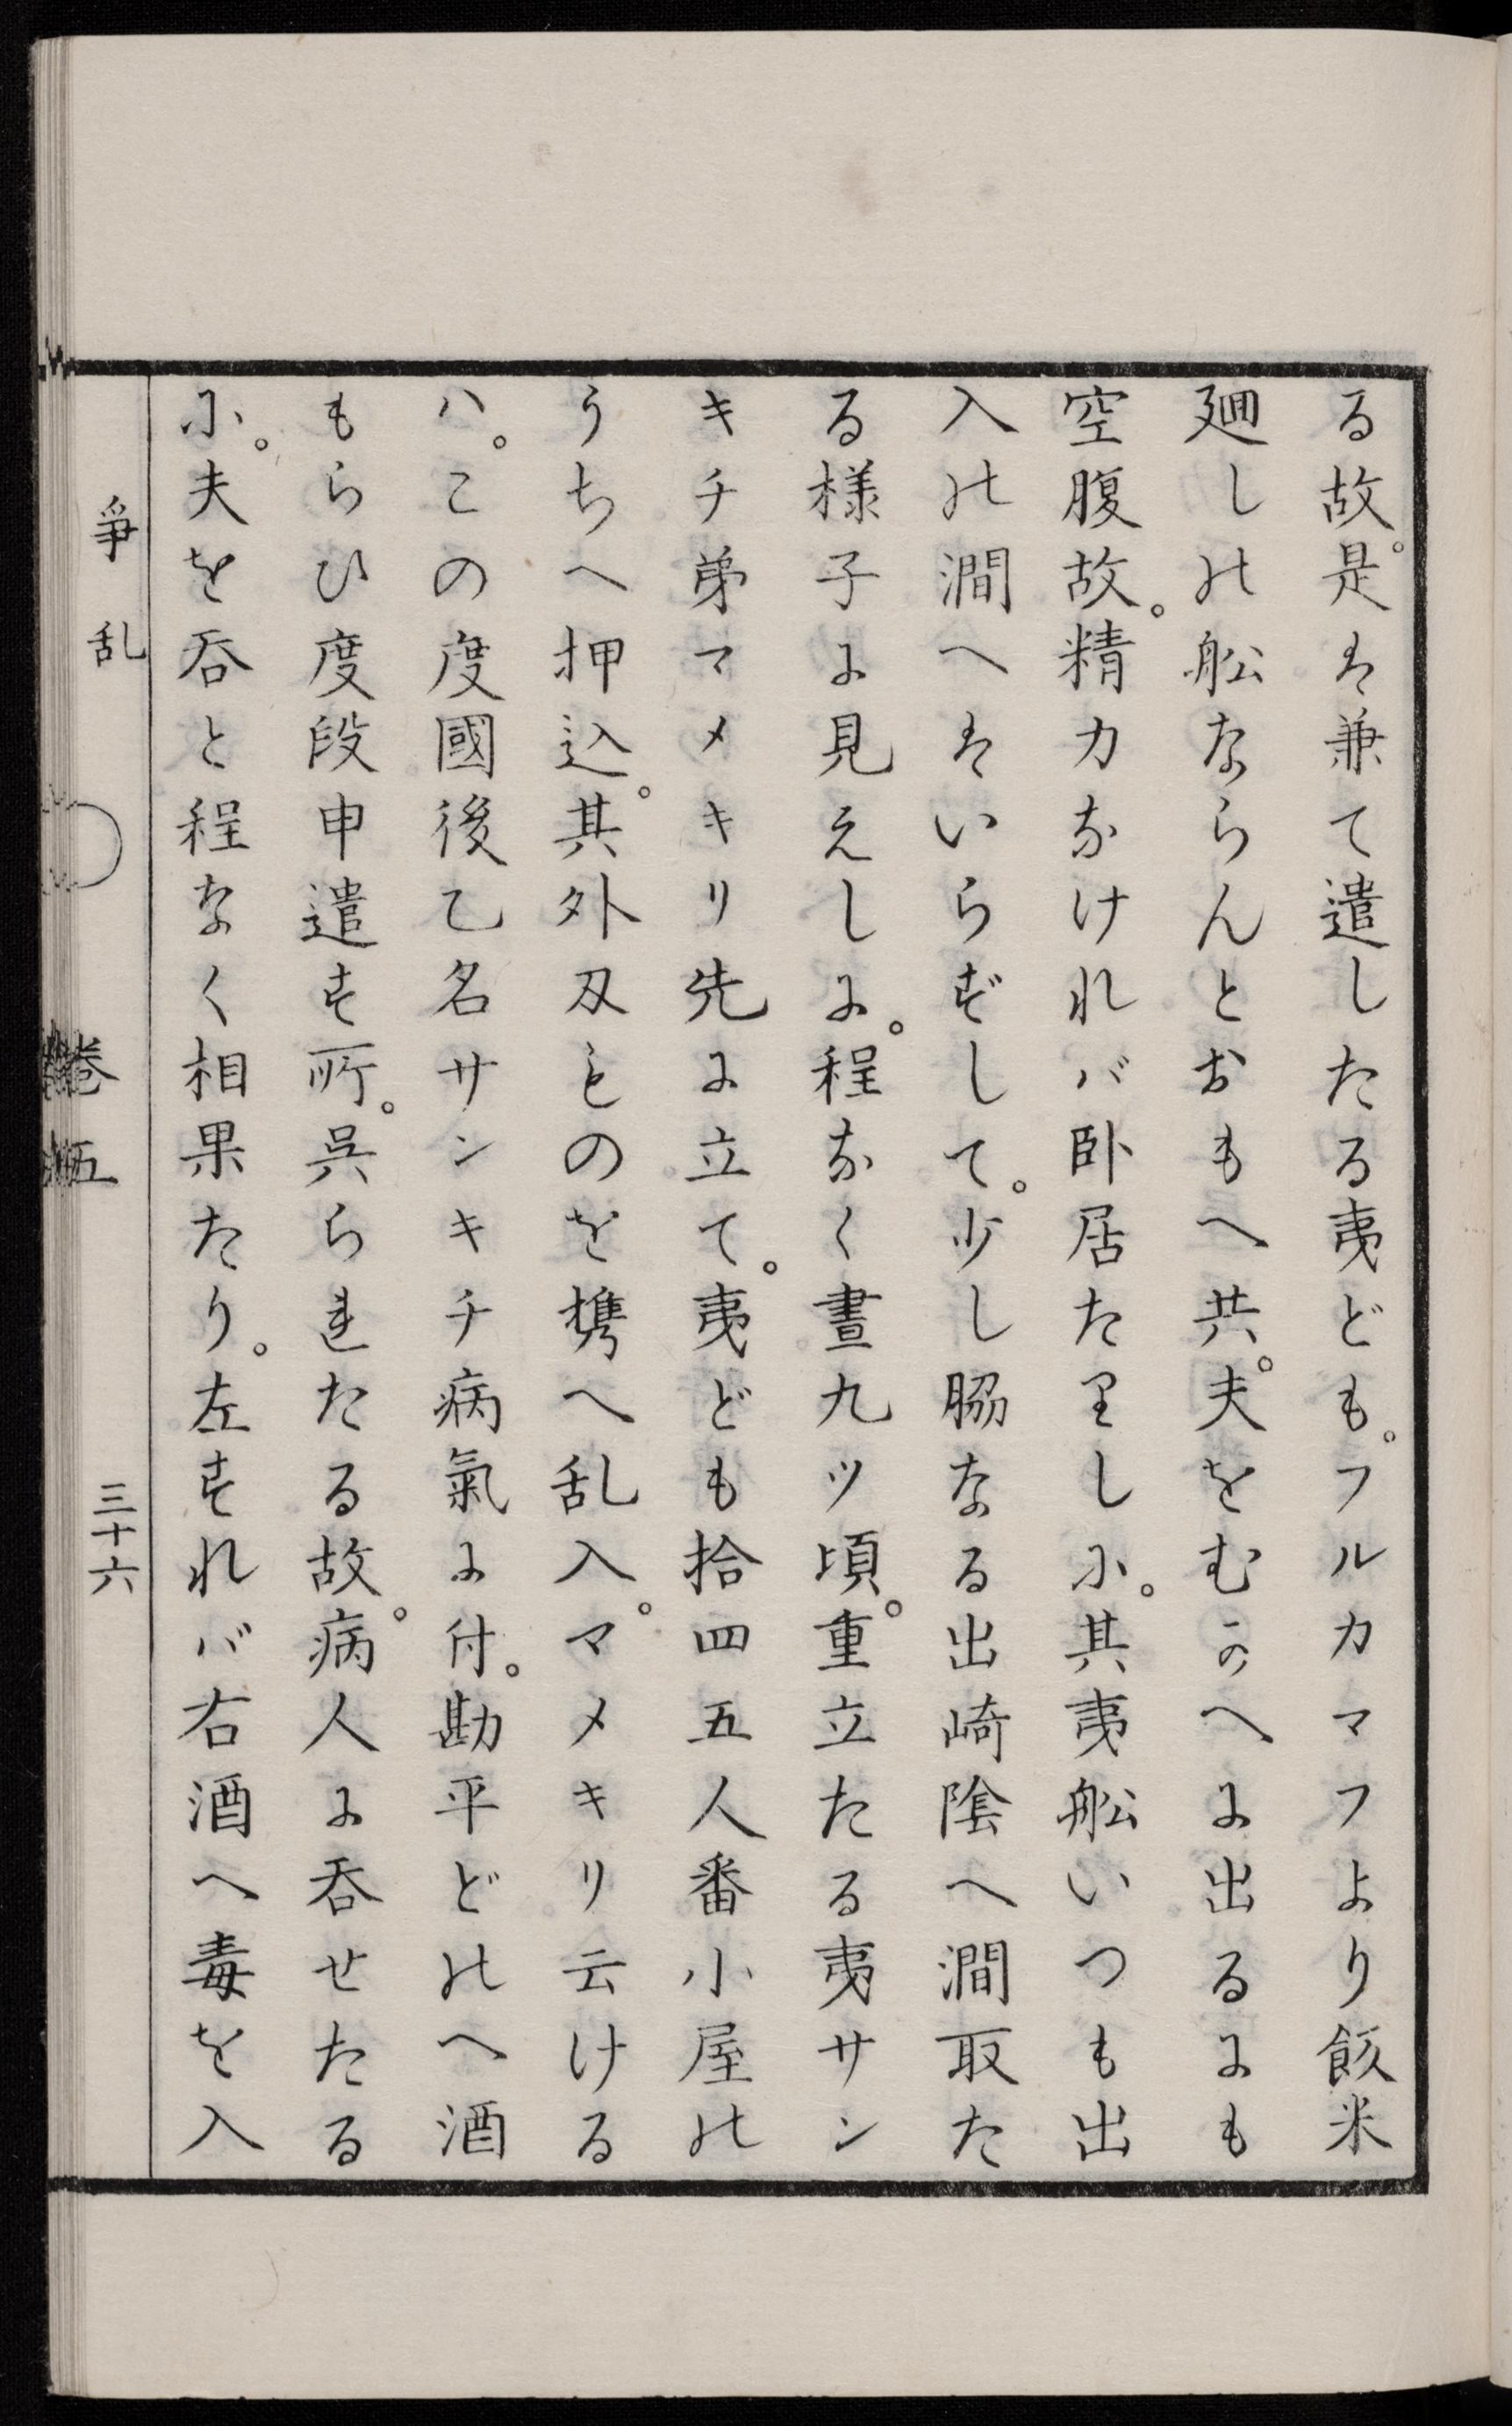 る故。是は兼て遣したる夷ども。フルカマフより飯米
廻しの舩ならんとおもへ共。夫をむかへに出るにも
空腹故。精力なけれバ卧居たりしに。其夷舩いつも出
入の澗へはいらずして。少し脇なる出崎陰へ澗取た
る様子に見えしに。程なく晝九ツ頃。重立たる夷サン
キチ弟マメキリ先に立て。夷ども拾四五人番小屋の
うちへ押込。其外刄ものを携へ乱入。マメキリ云ける
ハ。この度國後乙名サンキチ病氣に付。勘平どのへ酒
もらひ度段申遣す所。呉られたる故。病人に呑せたる
に。夫を呑と程なく相果たり。左すれバ右酒へ毒を入
爭乱
卷五
三十六